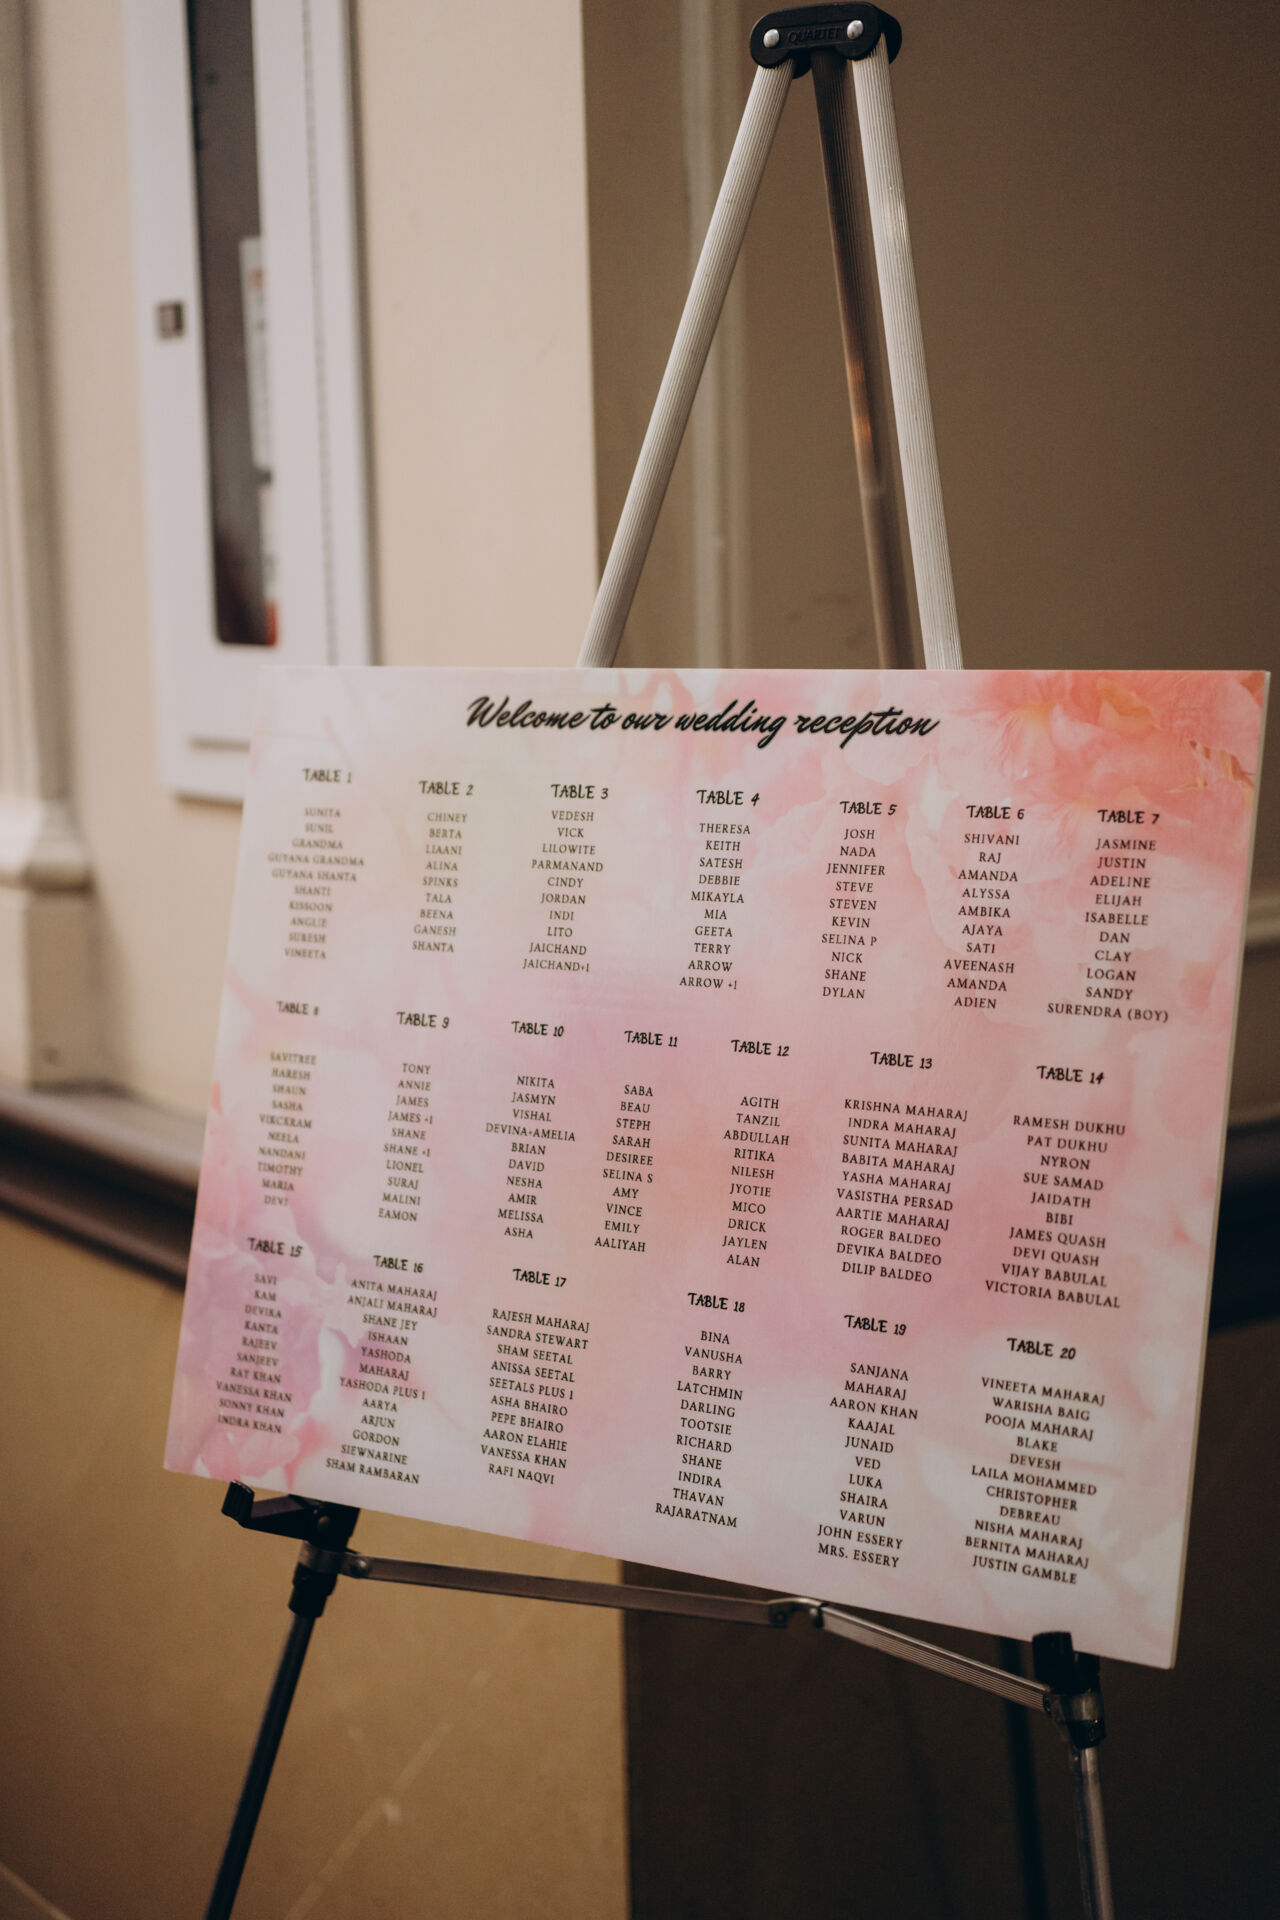 QUARTET
Welcome to our wedding reception
TABLE 1
SUNITA
SUNIL
GRANDMA
GUYANA GRANDMA
GUYANA SHANTA
SHANTI
KISSOON
ANGLIE
SURESH
VINEETA
TABLE 2
CHINEY
BERTA
LIAANI
ALINA
SPINKS
TALA
BEENA
GANESH
SHANTA
TABLE 3
VEDESH
VICK
LILOWITE
PARMANAND
CINDY
JORDAN
INDI
LITO
JAICHAND
JAICHAND+1
TABLE 4
THERESA
KEITH
SATESH
DEBBIE
MIKAYLA
MIA
GEETA
TERRY
ARROW
ARROW +1
TABLE 5
JOSH
NADA
JENNIFER
STEVE
STEVEN
KEVIN
SELINA P
NICK
SHANE
DYLAN
TABLE 6
SHIVANI
RAJ
AMANDA
ALYSSA
AMBIKA
AJAYA
SATI
AVEENASH
AMANDA
ADIEN
TABLE 7
JASMINE
JUSTIN
ADELINE
ELIJAH
ISABELLE
DAN
CLAY
LOGAN
SANDY
SURENDRA (BOY)
TABLE 8
SAVITREE
HARESH
SHAUN
SASHA
VIKCKRAM
NEELA
NANDANI
TIMOTHY
MARIA
DEVI
TABLE 9
TONY
ANNIE
JAMES
JAMES +1
SHANE
SHANE +1
LIONEL
SURAJ
MALINI
EAMON
TABLE 10
NIKITA
JASMYN
VISHAL
DEVINA+AMELIA
BRIAN
DAVID
NESHA
AMIR
MELISSA
ASHA
TABLE 11
SABA
BEAU
STEPH
SARAH
DESIREE
SELINA S
AMY
VINCE
EMILY
AALIYAH
TABLE 12
AGITH
TANZIL
ABDULLAH
RITIKA
NILESH
JYOTIE
MICO
DRICK
JAYLEN
ALAN
TABLE 13
KRISHNA MAHARAJ
INDRA MAHARAJ
SUNITA MAHARAJ
BABITA MAHARAJ
YASHA MAHARAJ
VASISTHA PERSAD
AARTIE MAHARAJ
ROGER BALDEO
DEVIKA BALDEO
DILIP BALDEO
TABLE 14
RAMESH DUKHU
PAT DUKHU
NYRON
SUE SAMAD
JAIDATH
BIBI
JAMES QUASH
DEVI QUASH
VIJAY BABULAL
VICTORIA BABULAL
TABLE 15
SAVI
KAM
DEVIKA
KANTA
RAJEEV
SANJEEV
RAY KHAN
VANESSA KHAN
SONNY KHAN
INDRA KHAN
TABLE 16
ANITA MAHARAJ
ANJALI MAHARAJ
SHANE JEY
ISHAAN
YASHODA
MAHARAJ
YASHODA PLUS 1
AARYA
ARJUN
GORDON
SIEWNARINE
SHAM RAMBARAN
TABLE 17
RAJESH MAHARAJ
SANDRA STEWART
SHAM SEETAL
ANISSA SEETAL
SEETALS PLUS 1
ASHA BHAIRO
PEPE BHAIRO
AARON ELAHIE
VANESSA KHAN
RAFI NAQVI
TABLE 18
BINA
VANUSHA
BARRY
LATCHMIN
DARLING
TOOTSIE
RICHARD
SHANE
INDIRA
THAVAN
RAJARATNAM
TABLE 19
SANJANA
MAHARAJ
AARON KHAN
KAAJAL
JUNAID
VED
LUKA
SHAIRA
VARUN
JOHN ESSERY
MRS. ESSERY
TABLE 20
VINEETA MAHARAJ
WARISHA BAIG
POOJA MAHARAJ
BLAKE
DEVESH
LAILA MOHAMMED
CHRISTOPHER
DEBREAU
NISHA MAHARAJ
BERNITA MAHARAJ
JUSTIN GAMBLE